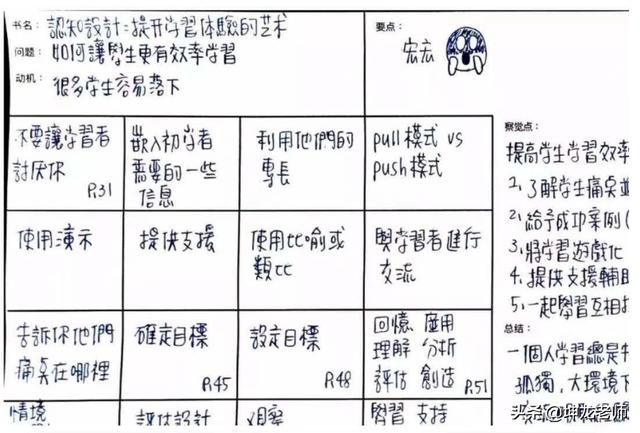 书名: 認知設計:提升学習体驗的艺术
问题: 如何讓學生更有效率学習
动机: 很多学生容易落下
要点:
宏宏
不要讓学習者
討厌你
P.31
嵌入初学者
需要的一些
信息
利用他們的
專長
pull模式 vs
push模式
使用演示
提供支援
使用比喻或
類比
與学習者進行
交流
告訴你他們
痛桌在哪裡
確定目標
P.45
設定目標
P.48
回憶 應用
理解 分析
評估 創造
P.51
情境
評估設計
观察
學習 支持
察觉点:
提高学生学習效率
1, 了解学生痛桌並
2, 給予成功案例(
3, 將学習遊戲化
4. 提供支援輔助
5. 一起學習互相
总结:
一個人学習總是
孤獨, 大環境下
头条@坤龙老师